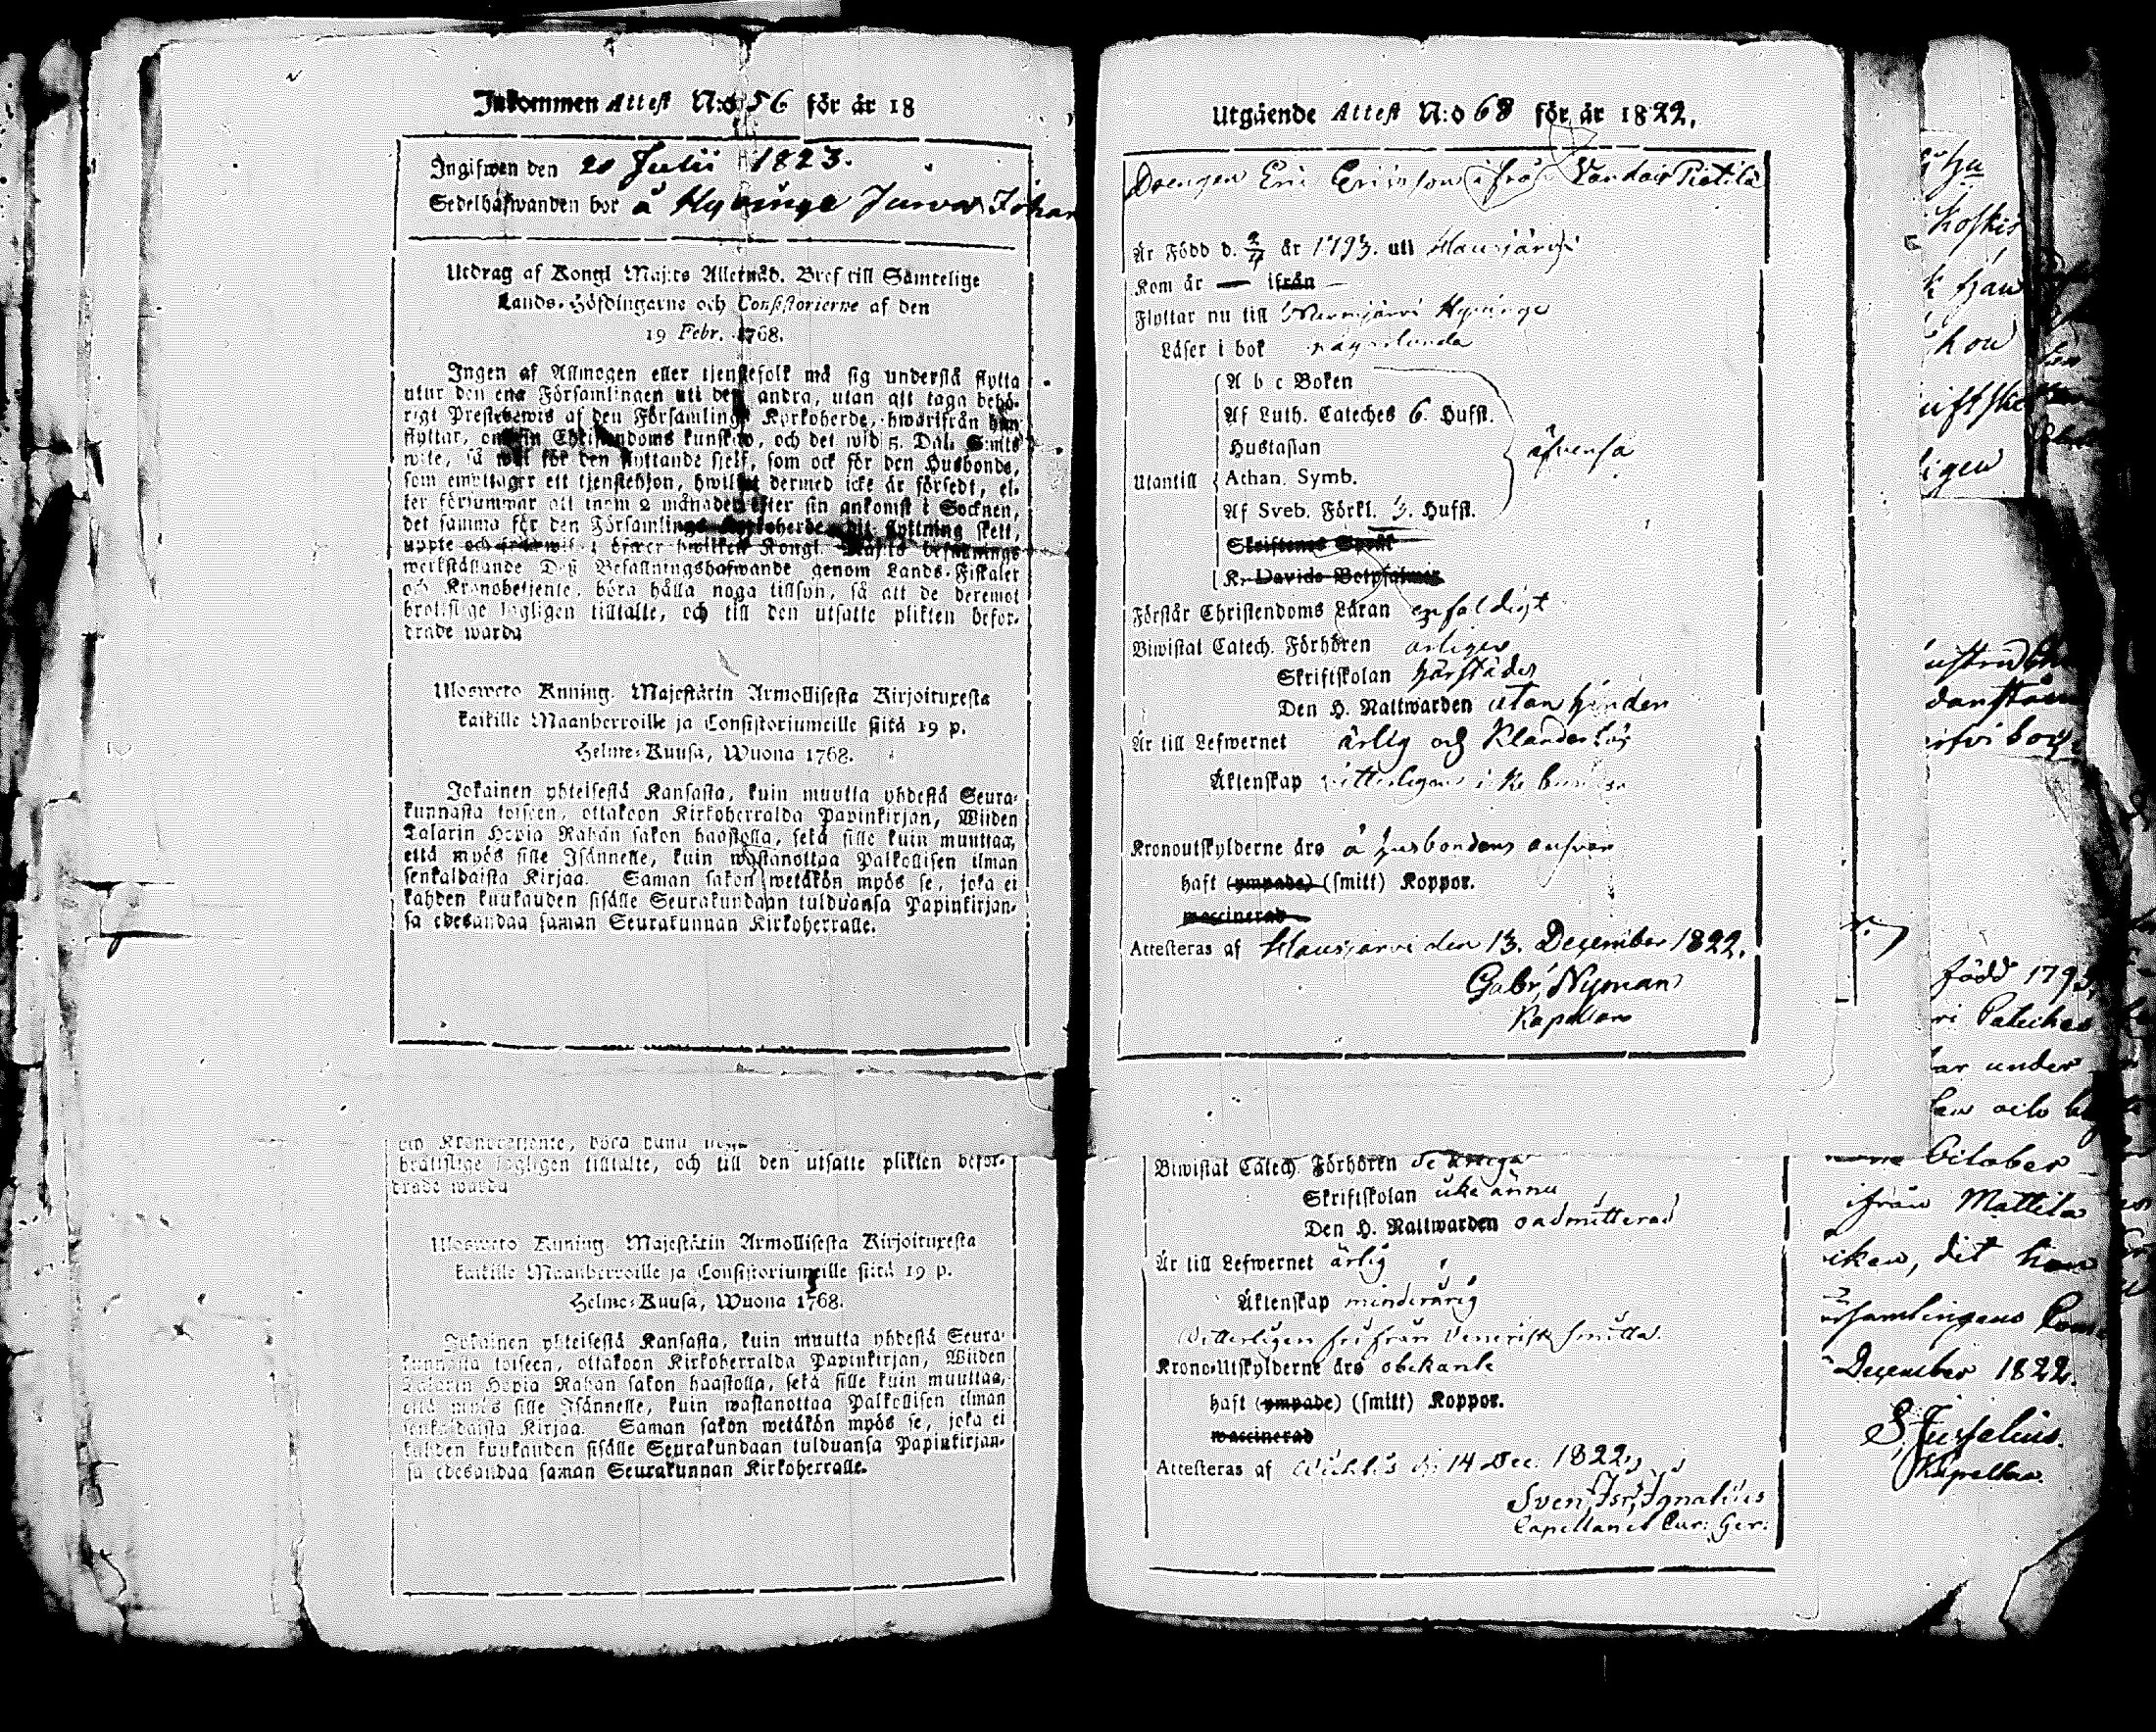 Inkommen Attest N:o 56 för år 18
Ingifwen den 20 Julii 1823.
Sedelhafwanden bor å Hyvinge Juwas Johan
Utdrag af Kongl Maj:ts Allernåd. Bref till Samtelige
Lands-Höfdingarne och Consistorierne af den
19 Febr. 1768.
Ingen af Allmogen eller tjenstefolk må sig understå flytta
utur den ena Församlingen uti den andra, utan att taga behö-
rigt Prestebewis af den Församlings Kyrkoherde, hwarifrån han
flyttar, om sin Christendoms kunskap, och det wid 5. Dal. S:mts
wite, så wäl för den flyttande sjelf, som ock för den Husbonde,
som emottager ett tjenstehjon, hwilket dermed icke är försedt, el-
ler försummar att inom 2 månader efter sin ankomst i Socknen,
det samma för den Församlings Kyrkoherde dit flyttning skett,
uppte och hwilket Kongl. Maj:ts befallnings
werkställande Dess Befallningshafwande genom Lands-Fiskaler
och Kronobetjente, böra hålla noga tillsyn, så att de deremot
brottslige lagligen tilltalte, och till den utsatte plikten befor-
drade warda
Ulosweto Kuning. Majestätin Armollisesta Kirjoituxesta
kaikille Maanherroille ja Consistoriumeille siitä 19 p.
Helme-Kuusa, Wuona 1768.
Jokainen yhteisestä Kansasta, kuin muutta yhdestä Seura-
kunnasta toiseen, ottakoon Kirkoherralda Papinkirjan, Wiiden
Talarin Hopia Rahan sakon haastolla, sekä sille kuin muuttaa,
että myös sille Isännelle, kuin wastanottaa Palkollisen ilman
senkaldaista Kirjaa. Saman sakon wetäkön myös se, joka ei
kahden kuukauden sisälle Seurakundaan tulduansa Papinkirjan-
sa edesandaa saman Seurakunnan Kirkoherralle.
och Kronobetjente, böra
brottslige lagligen tilltalte, och till den utsatte plikten befor-
drade warda
Ulosweto Kuning. Majestätin Armollisesta Kirjoituxesta
kaikille Maanherroille ja Consistoriumeille siitä 19 p.
Helme-Kuusa, Wuona 1768.
Jokainen yhteisestä Kansasta, kuin muutta yhdestä Seura-
kunnasta toiseen, ottakoon Kirkoherralda Papinkirjan, Wiiden
Talarin Hopia Rahan sakon haastolla, sekä sille kuin muuttaa,
että myös sille Isännelle, kuin wastanottaa Palkollisen ilman
senkaldaista Kirjaa. Saman sakon wetäkön myös se, joka ei
kahden kuukauden sisälle Seurakundaan tulduansa Papinkirjan-
sa edesandaa saman Seurakunnan Kirkoherralle.
Utgående Attest N:o 68 för år 1822.
Drengen Eric Ericsson ifrån Pietilä
Är Född d. år 1793. uti Hausjärvi
Kom år — ifrån —
Flyttar nu till Nurmijärvi Hyvinge
Läser i bok någorlunda
A b c Boken
Af Luth. Cateches 6. Hufst.
Hustaflan
Utantill Athan. Symb. äfvenså
Af Sveb. Förkl. 3. Hufst.
Skriftenes Språk
K. Davids Botpsalmer
Förstår Christendoms Läran enfaldigt
Biwistat Catech. Förhören årligen
Skriftskolan härstädes
Den H. Nattwarden utan hinder
Är till Lefwernet ärlig och klanderlös
Äktenskap vitterligen icke bunden
Kronoutskylderne äro å husbondens ansvar
haft (ympade) (smitt) Koppor.
waccinerad
Attesteras af Hausjärvi den 13. December 1822.
Gabr. Nyman
Kapellan
Biwistat Catech. Förhören
Skriftskolan icke ännu
Den H. Nattwarden oadmitterad
Är till Lefwernet ärlig
Äktenskap minderårig
Vitterligen fri från Venerisk smitta.
Krono-Utskylderne äro obekante
haft (ympade) (smitt) Koppor.
waccinerad
Attesteras af Wichtis d. 14 Dec. 1822.
Sven Isr. Ignatius
Capellan et Cur. Ger.
Koskis
född 1793
under
October
ifrån Mattila
dit han
December 1822.
S. Juselius.
Kapellan.